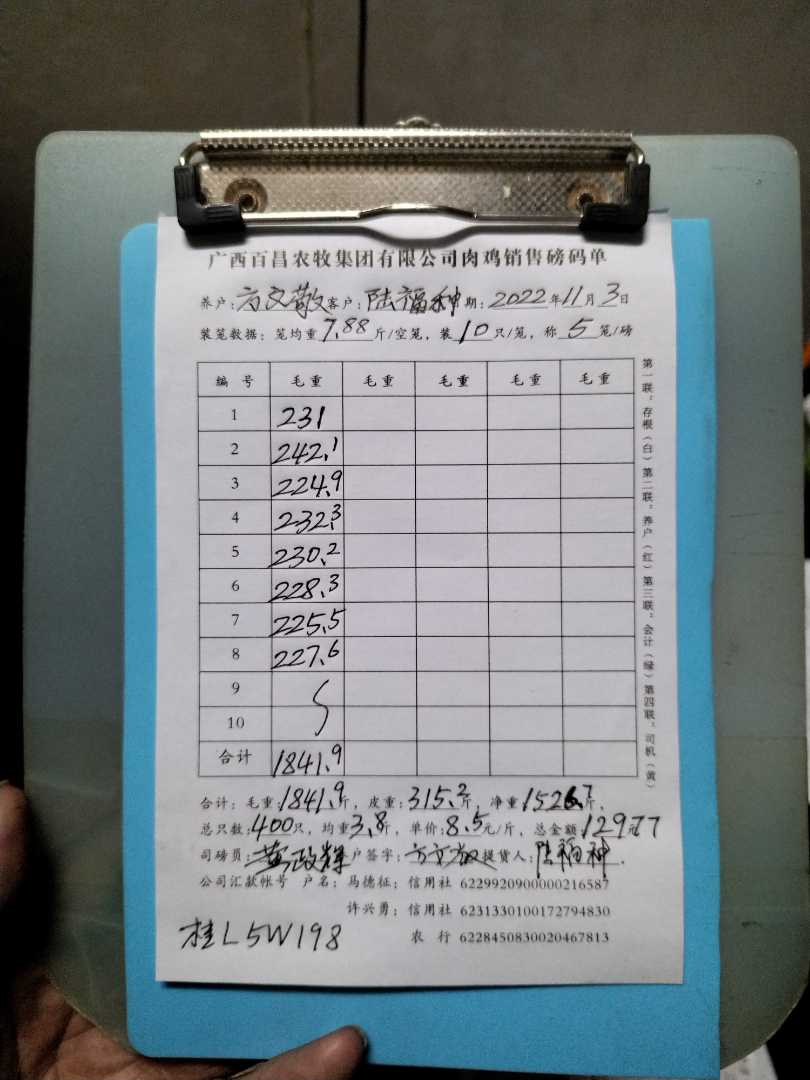 广西百昌农牧集团有限公司肉鸡销售磅码单
养户:方文敬客户:陆福种期:2022年11月3日
装笼数据:笼均重7.88斤/空笼,装10只/笼,称5笼/磅
编号 毛重 毛重 毛重 毛重 毛重
1 231
2 242.1
3 224.9
4 232.3
5 230.2
6 228.3
7 225.5
8 227.6
9
10
合计 1841.9
第一联:存根(白)第二联:养户(红)第三联:会计(绿)第四联:司机(黄)
合计:毛重:1841.9斤,皮重:315.2斤,净重1526.7斤,
总只数:400只,均重3.8斤,单价:8.5元/斤,总金额:12977
司磅员:黄政辉户签字:方文敬提货人:陆福种.
公司汇款帐号 户名:马德征:信用社 6229920900000216587
许兴勇:信用社 6231330100172794830
农行 6228450830020467813
桂L5W198